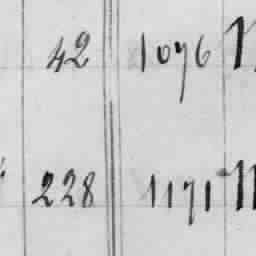 42 1076
228 1171